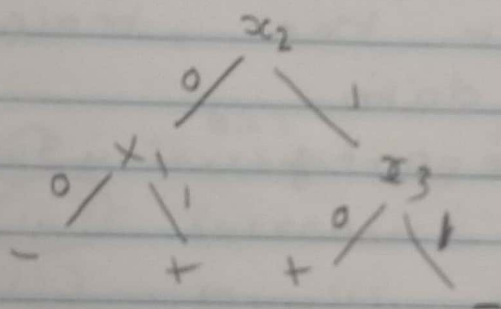 x2
0 1
x1 x3
0 1 0 1
- + +